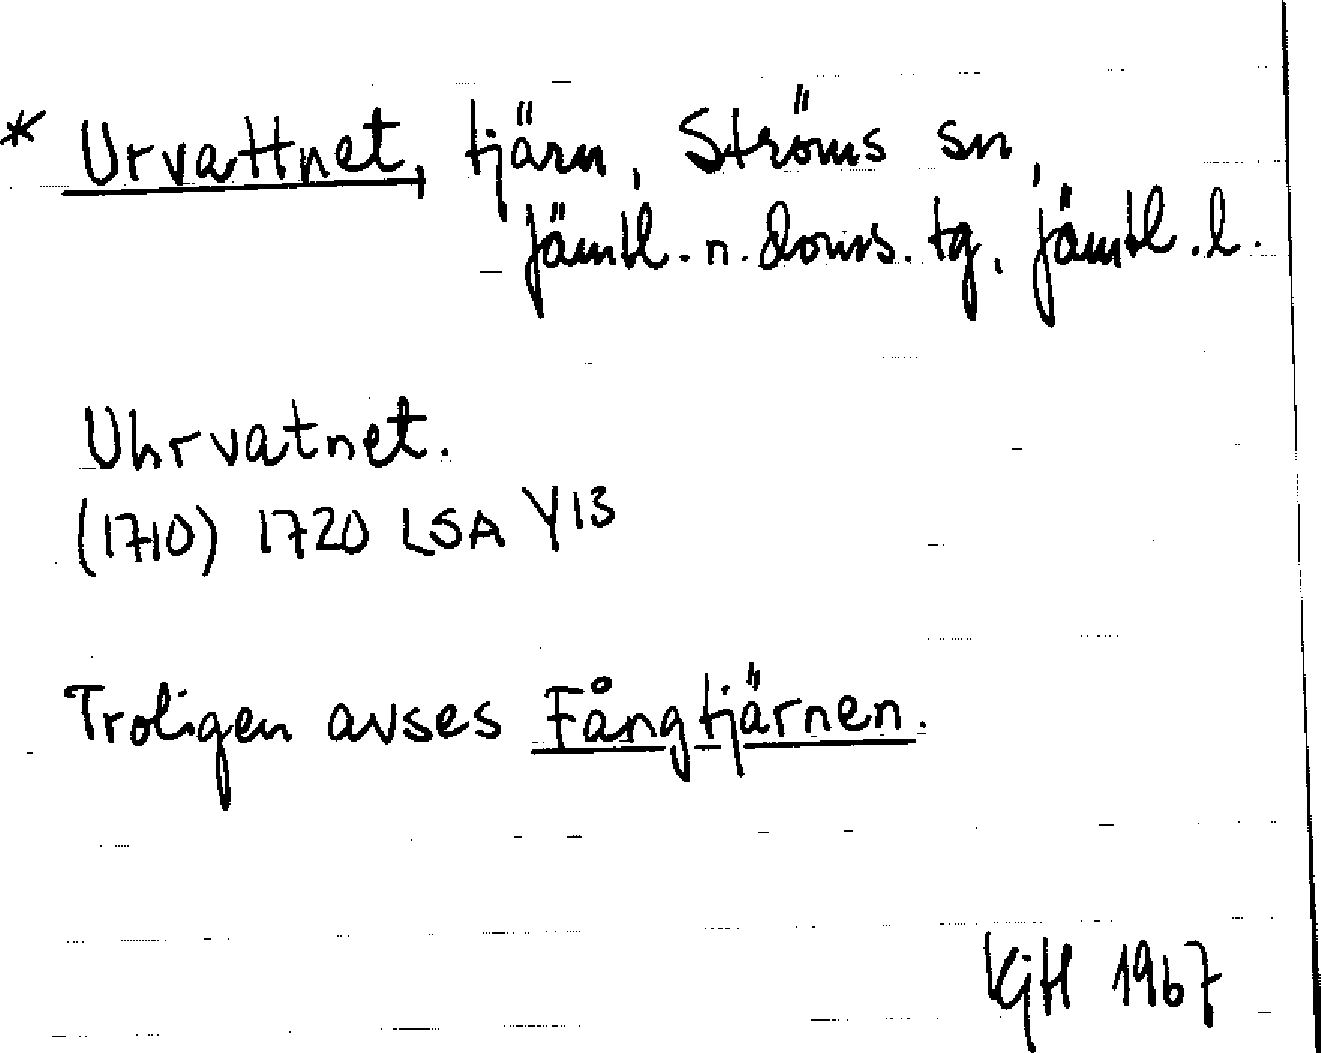 * Urvattnet, tjärn, Ströms sn,
Jämtl. n. doms. tg, Jämtl. l.
Uhrvatnet.
(1710) 1720 LSA Y13
Troligen avses Fångtjärnen.
KjH 1967